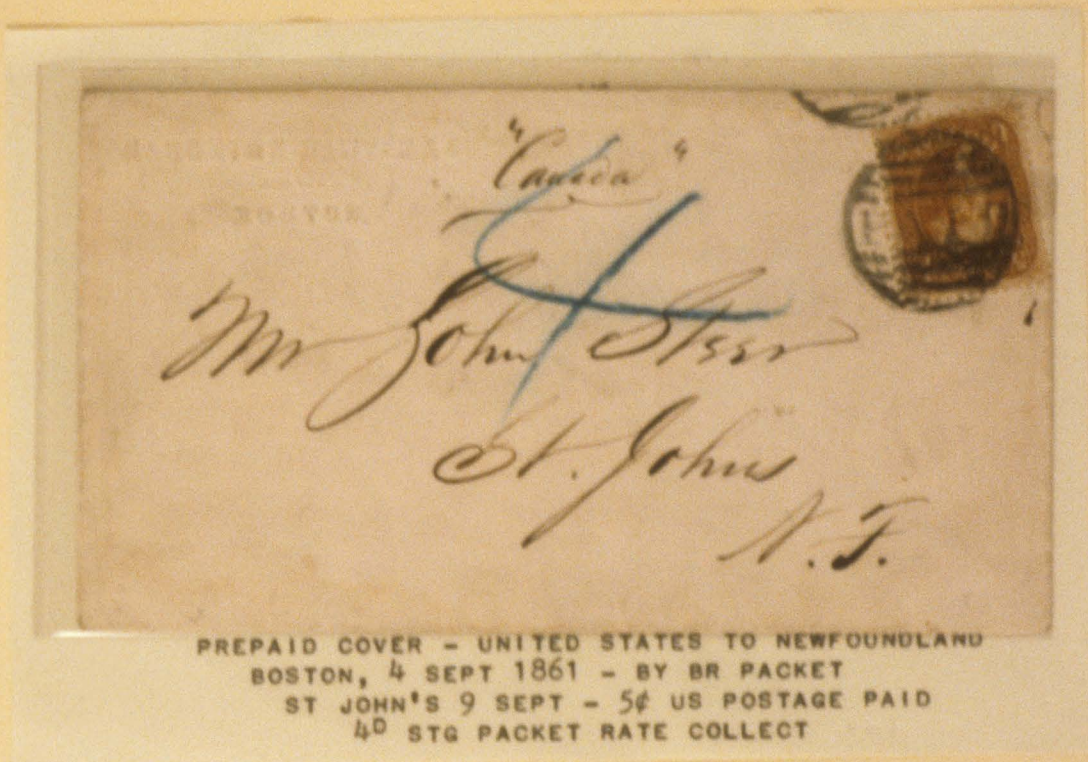 "Canada"
4
Mr John Steer
St. Johns
N. F.
PREPAID COVER – UNITED STATES TO NEWFOUNDLAND
BOSTON, 4 SEPT 1861 – BY BR PACKET
ST JOHN'S 9 SEPT – 5¢ US POSTAGE PAID
4D STG PACKET RATE COLLECT